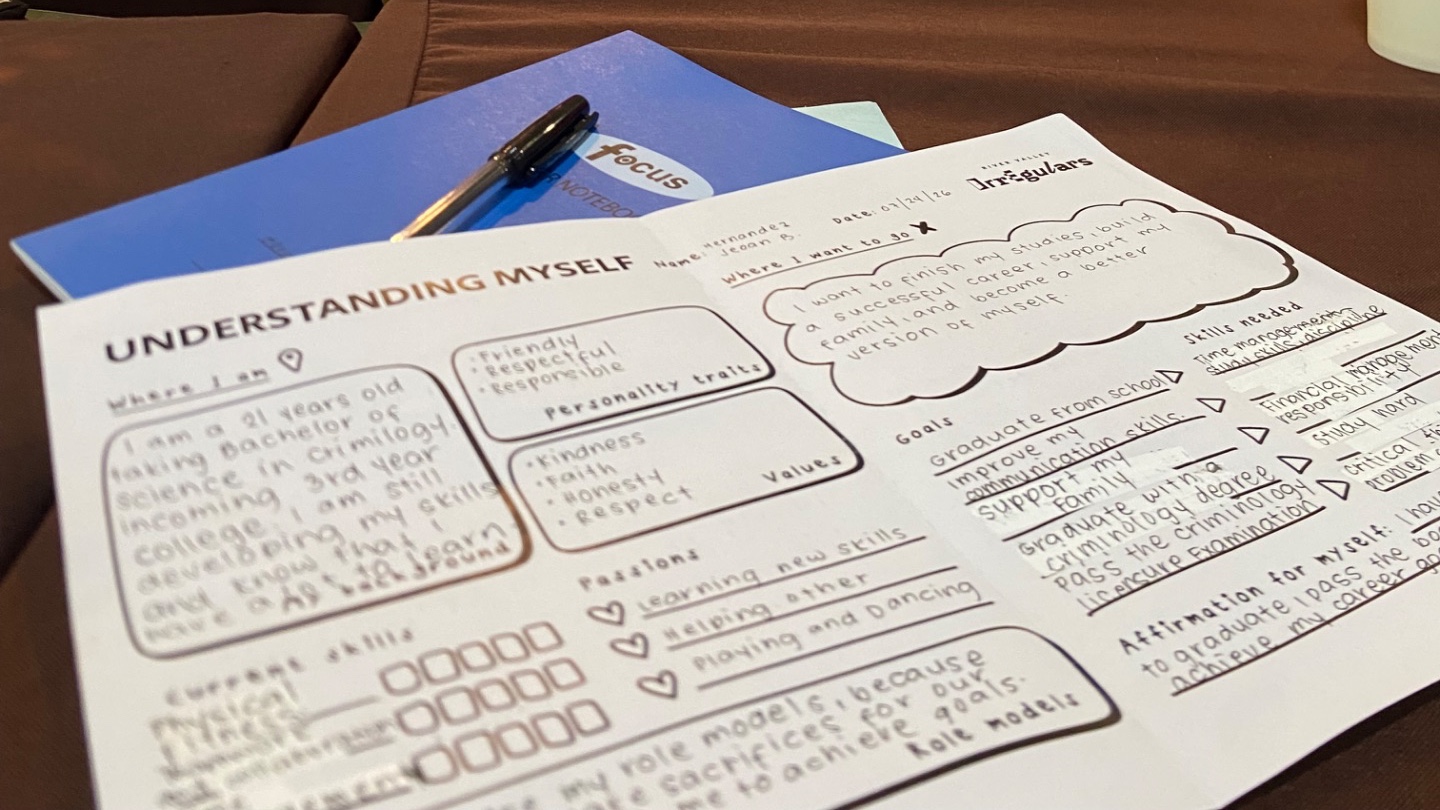 focus
NOTEBO
RIVER VALLEY
Irregulars
UNDERSTANDING MYSELF
Name: Hernandez
Jeoan B.
Date: 07/24/26
Where I am
I am a 21 years old
taking Bachelor of
science in crimilogy
incoming 3rd year
college. I am still
developing my skills
and know that I
have a lot to learn.
My background
• Friendly
• Respectful
• Responsible
Personality traits
• Kindness
• Faith
• Honesty
• Respect
Values
Current skills
Physical
Fitness
Passions
Learning new skills
Helping other
Playing and Dancing
my role models, because
sacrifices for our
me to achieve goals.
Role models
Where I want to go
I want to finish my studies, build
a successful career, support my
family, and become a better
version of myself.
Goals
Graduate from school
Improve my
communication skills.
support my
Family
Graduate with a
criminology degree
Pass the criminology
licensure Examination
Skills needed
Time management
study skills, discipline
Financial management
responsibility
Study hard
critical
Problem
Affirmation for myself:
to graduate, pass the
achieve my career